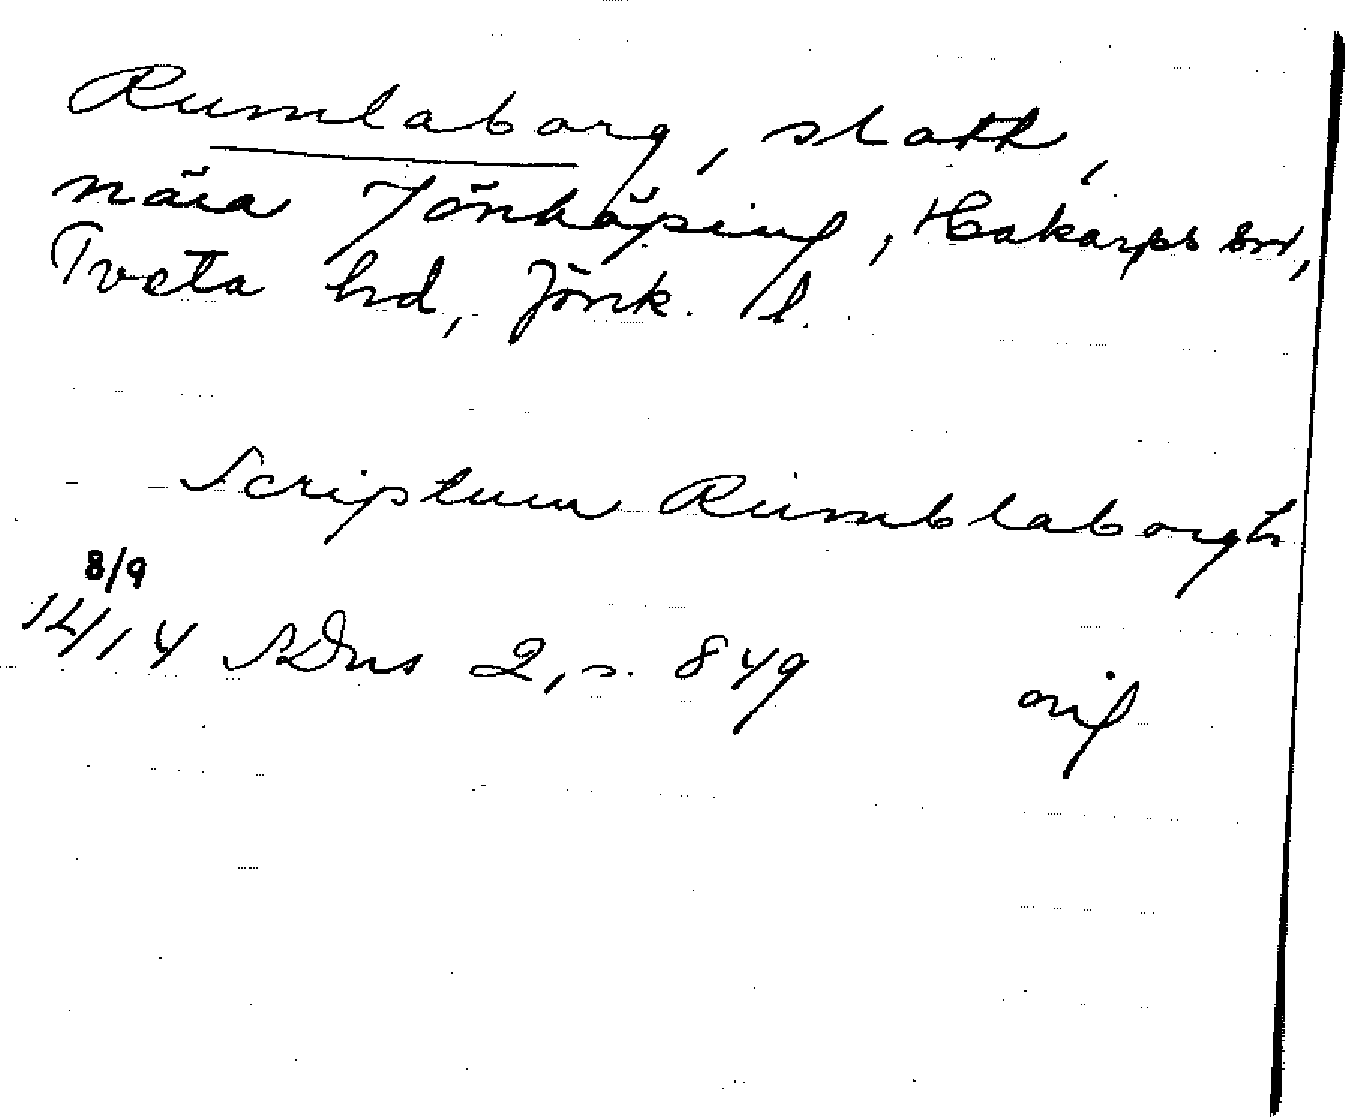 Rumlaborg, slott,
nära Jönköping, Hakarps sn,
Tveta hd, Jönk. l.
Scriptum Rumblaborgh
8/9
1414 SDns 2, s. 849
orig